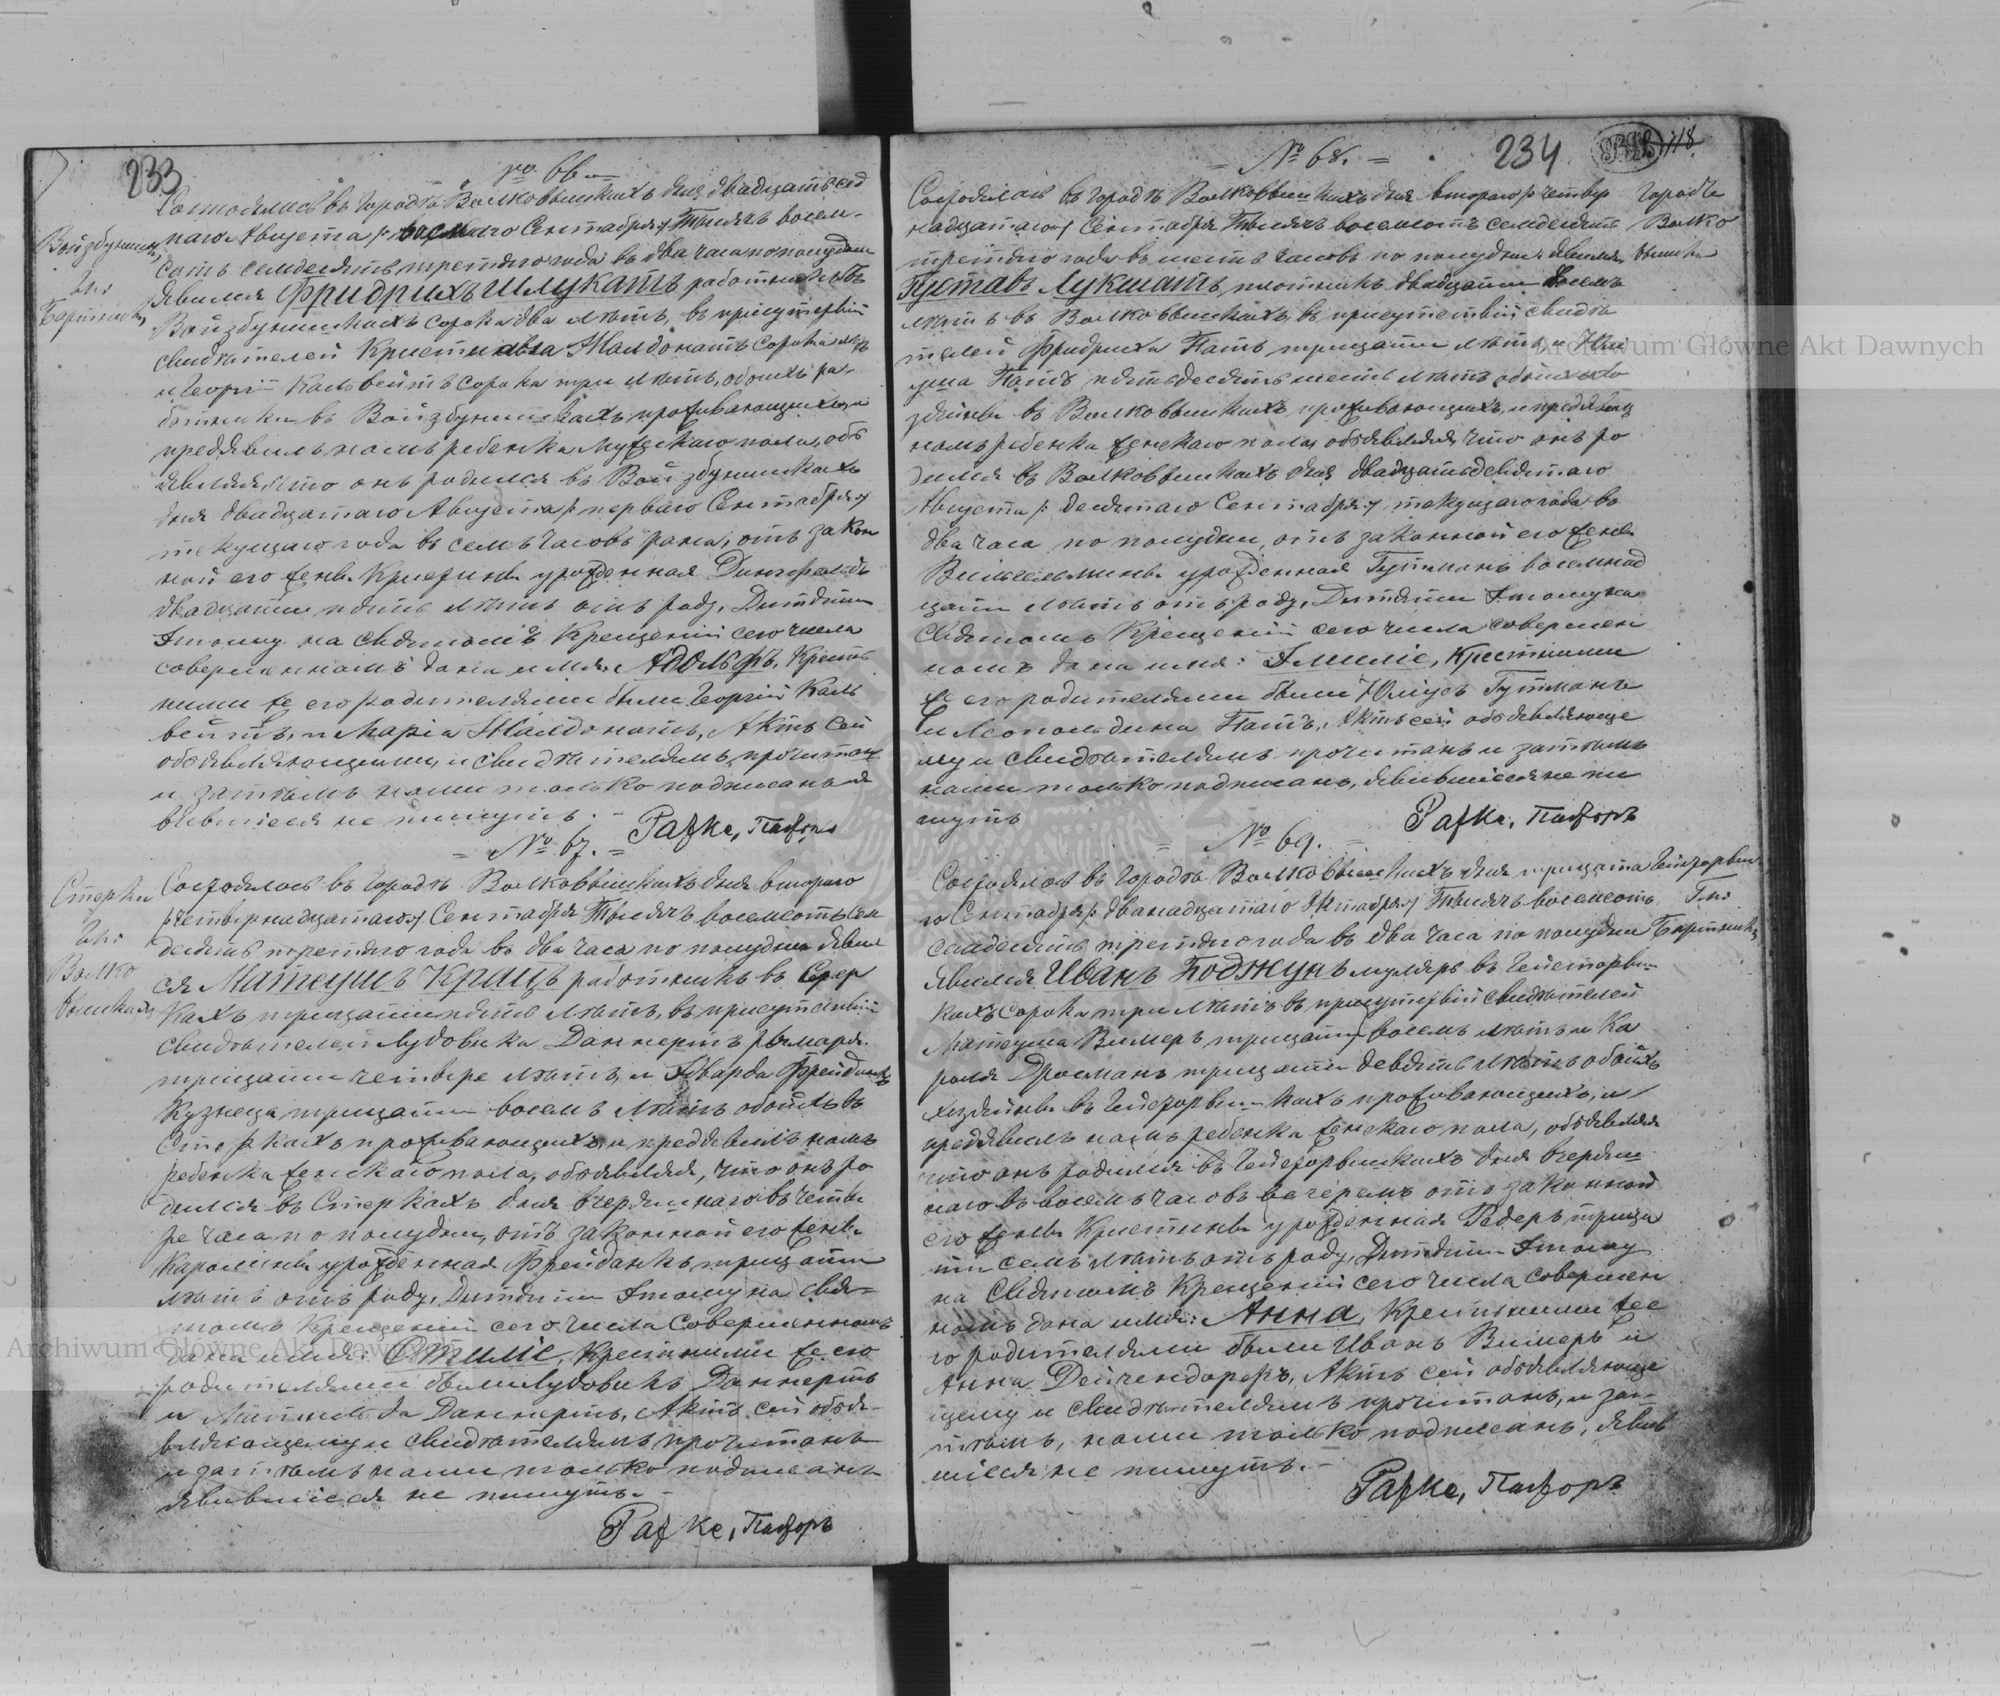 233
№ 66
Войзбунишки
Гми
Бартники
Состоялось въ городѣ Волковышкахъ дня двадцать сед
маго Августа /: восьмаго Сентября :/ Тысяча восем-
сотъ семдесятъ третяго года въ два часа по полудни
явился Фридрихъ Шлукатъ работникъ въ
Войзбунишкахъ сорока два лѣтъ, въ присутствіи
свидѣтелей Христіана Малдонатъ сорока лѣтъ
и Георгій Кальвейтъ сорока три лѣтъ, обоихъ ра-
ботники въ Войзбунишкахъ проживающихъ, и
предявилъ намъ ребенка мужескаго пола, объ
являя, что онъ родился въ Войзбунишкахъ
дня двадцатаго Августа /: перваго Сентября :/
текущаго года въ семъ часовъ рана, отъ закон
ной его жены Кристины урожденная Дингфельдъ
двадцати пять лѣтъ отъ роду. Дитяти
этому на Святомъ Крещеніи сего числа
совершенномъ дана имя: Адольфъ, Крест
ными же его родителями были Георгій Каль
вейтъ, и Марія Малдонатъ, Актъ сей
объявляющему, и свидѣтелямъ прочитанъ
и затѣмъ нами только подписанъ я
вившіеся не пишутъ. -
Рафке, Пасторъ
= № 67. =
Стерки
Гми
Волко
вышки
Состоялось въ городѣ Волковышкахъ дня втораго
/: четырнадцатаго :/ Сентября Тысяча восемсотъ сем
десятъ третяго года въ два часа по полудни явил
ся Матеушъ Кранцъ работникъ въ Стер
кахъ тридцати пять лѣтъ, въ присутствіи
свидѣтелей Лудовика Даннертъ рымаря
тридцати четыре лѣтъ, и Эдварда Фрейданкъ
Кузнеца тридцати восемъ лѣтъ обоихъ въ
Стеркахъ проживающихъ, и предявилъ намъ
ребенка женскаго пола, объявляя, что онъ ро
дился въ Стеркахъ дня вчерашнаго въ четы
ре часа по полудни, отъ законной его жены
Каролины урожденная Фрейданкъ тридцати
лѣтъ отъ роду. Дитяти этому на Свя-
томъ Крещеніи сего числа совершенномъ
дана имя: Отиліе, Крестными же его
родителями были Лудовикъ Даннертъ
и Матильда Даннертъ. Актъ сей объя-
вляющему и свидѣтелямъ прочитанъ
и затѣмъ нами только подписанъ
явившіеся не пишутъ. -
Рафке, Пасторъ
= № 68. =
234
118
городъ
Волко
вышки
Состоялось въ городѣ Волковышкахъ дня втораго /: четыр
надцатаго :/ Сентября Тысяча восемсотъ семдесятъ
третяго года въ шесть часовъ по полудни явился
Густавъ Лукшатъ плотникъ двадцати восемъ
лѣтъ въ Волковышкахъ, въ присутствіи свидѣ
телей Фридриха Патъ тридцати лѣтъ, и Юлі
уша Патъ пятьдесятъ шесть лѣтъ обоихъ хо
зяйны въ Волковышкахъ проживающихъ, и предявилъ
намъ ребенка женскаго пола, объявляя, что онъ ро
дился въ Волковышкахъ дня двадцать девятаго
Августа /: десятаго Сентября :/ текущаго года въ
два часа по полудни, отъ законной его жены
Вильгельмины урожденная Гутманъ восемнад
цати лѣтъ отъ роду. Дитяти этому на
Святомъ Крещеніи сего числа совершен
номъ дана имя: Эмиліе, Крестными
же его родителями были Юліусъ Гутманъ
и Леопольдина Патъ. Актъ сей объявляюще
му и свидѣтелямъ прочитанъ и затѣмъ
нами только подписанъ, явившіеся не пи
шутъ
Рафке, Пасторъ
= № 69. =
Гми
Бартники
Состоялось въ городѣ Волковышкахъ дня тридцата
го Сентября /: двѣнадцатаго Октября :/ Тысяча восемсотъ
семдесятъ третяго года въ два часа по полудни
явился Иванъ Боджунъ муляръ въ
кахъ сорока три лѣтъ въ присутствіи свидѣтелей
Матеуша Вимеръ тридцати восемъ лѣтъ и Ка
роля Дросманъ тридцати девять лѣтъ обоихъ
хозяйны въ проживающихъ, и
предявилъ намъ ребенка женскаго пола, объявляя
что онъ родился въ дня вчераш
наго въ восемъ часовъ вечеремъ отъ законной
его жены Кристины урожденная Редеръ тридца
ти семъ лѣтъ отъ роду. Дитяти этому
на Святомъ Крещеніи сего числа совершен
номъ дана имя: Анна, Крестными же е
го родителями были Иванъ Вимеръ и
Анна Дейчендорфъ. Актъ сей объявляюще
щему и свидѣтелямъ прочитанъ, и за-
тѣмъ, нами только подписанъ, явив
шіеся не пишутъ. -
Рафке, Пасторъ
Archiwum Główne Akt Dawnych
Archiwum Główne Akt Dawnych